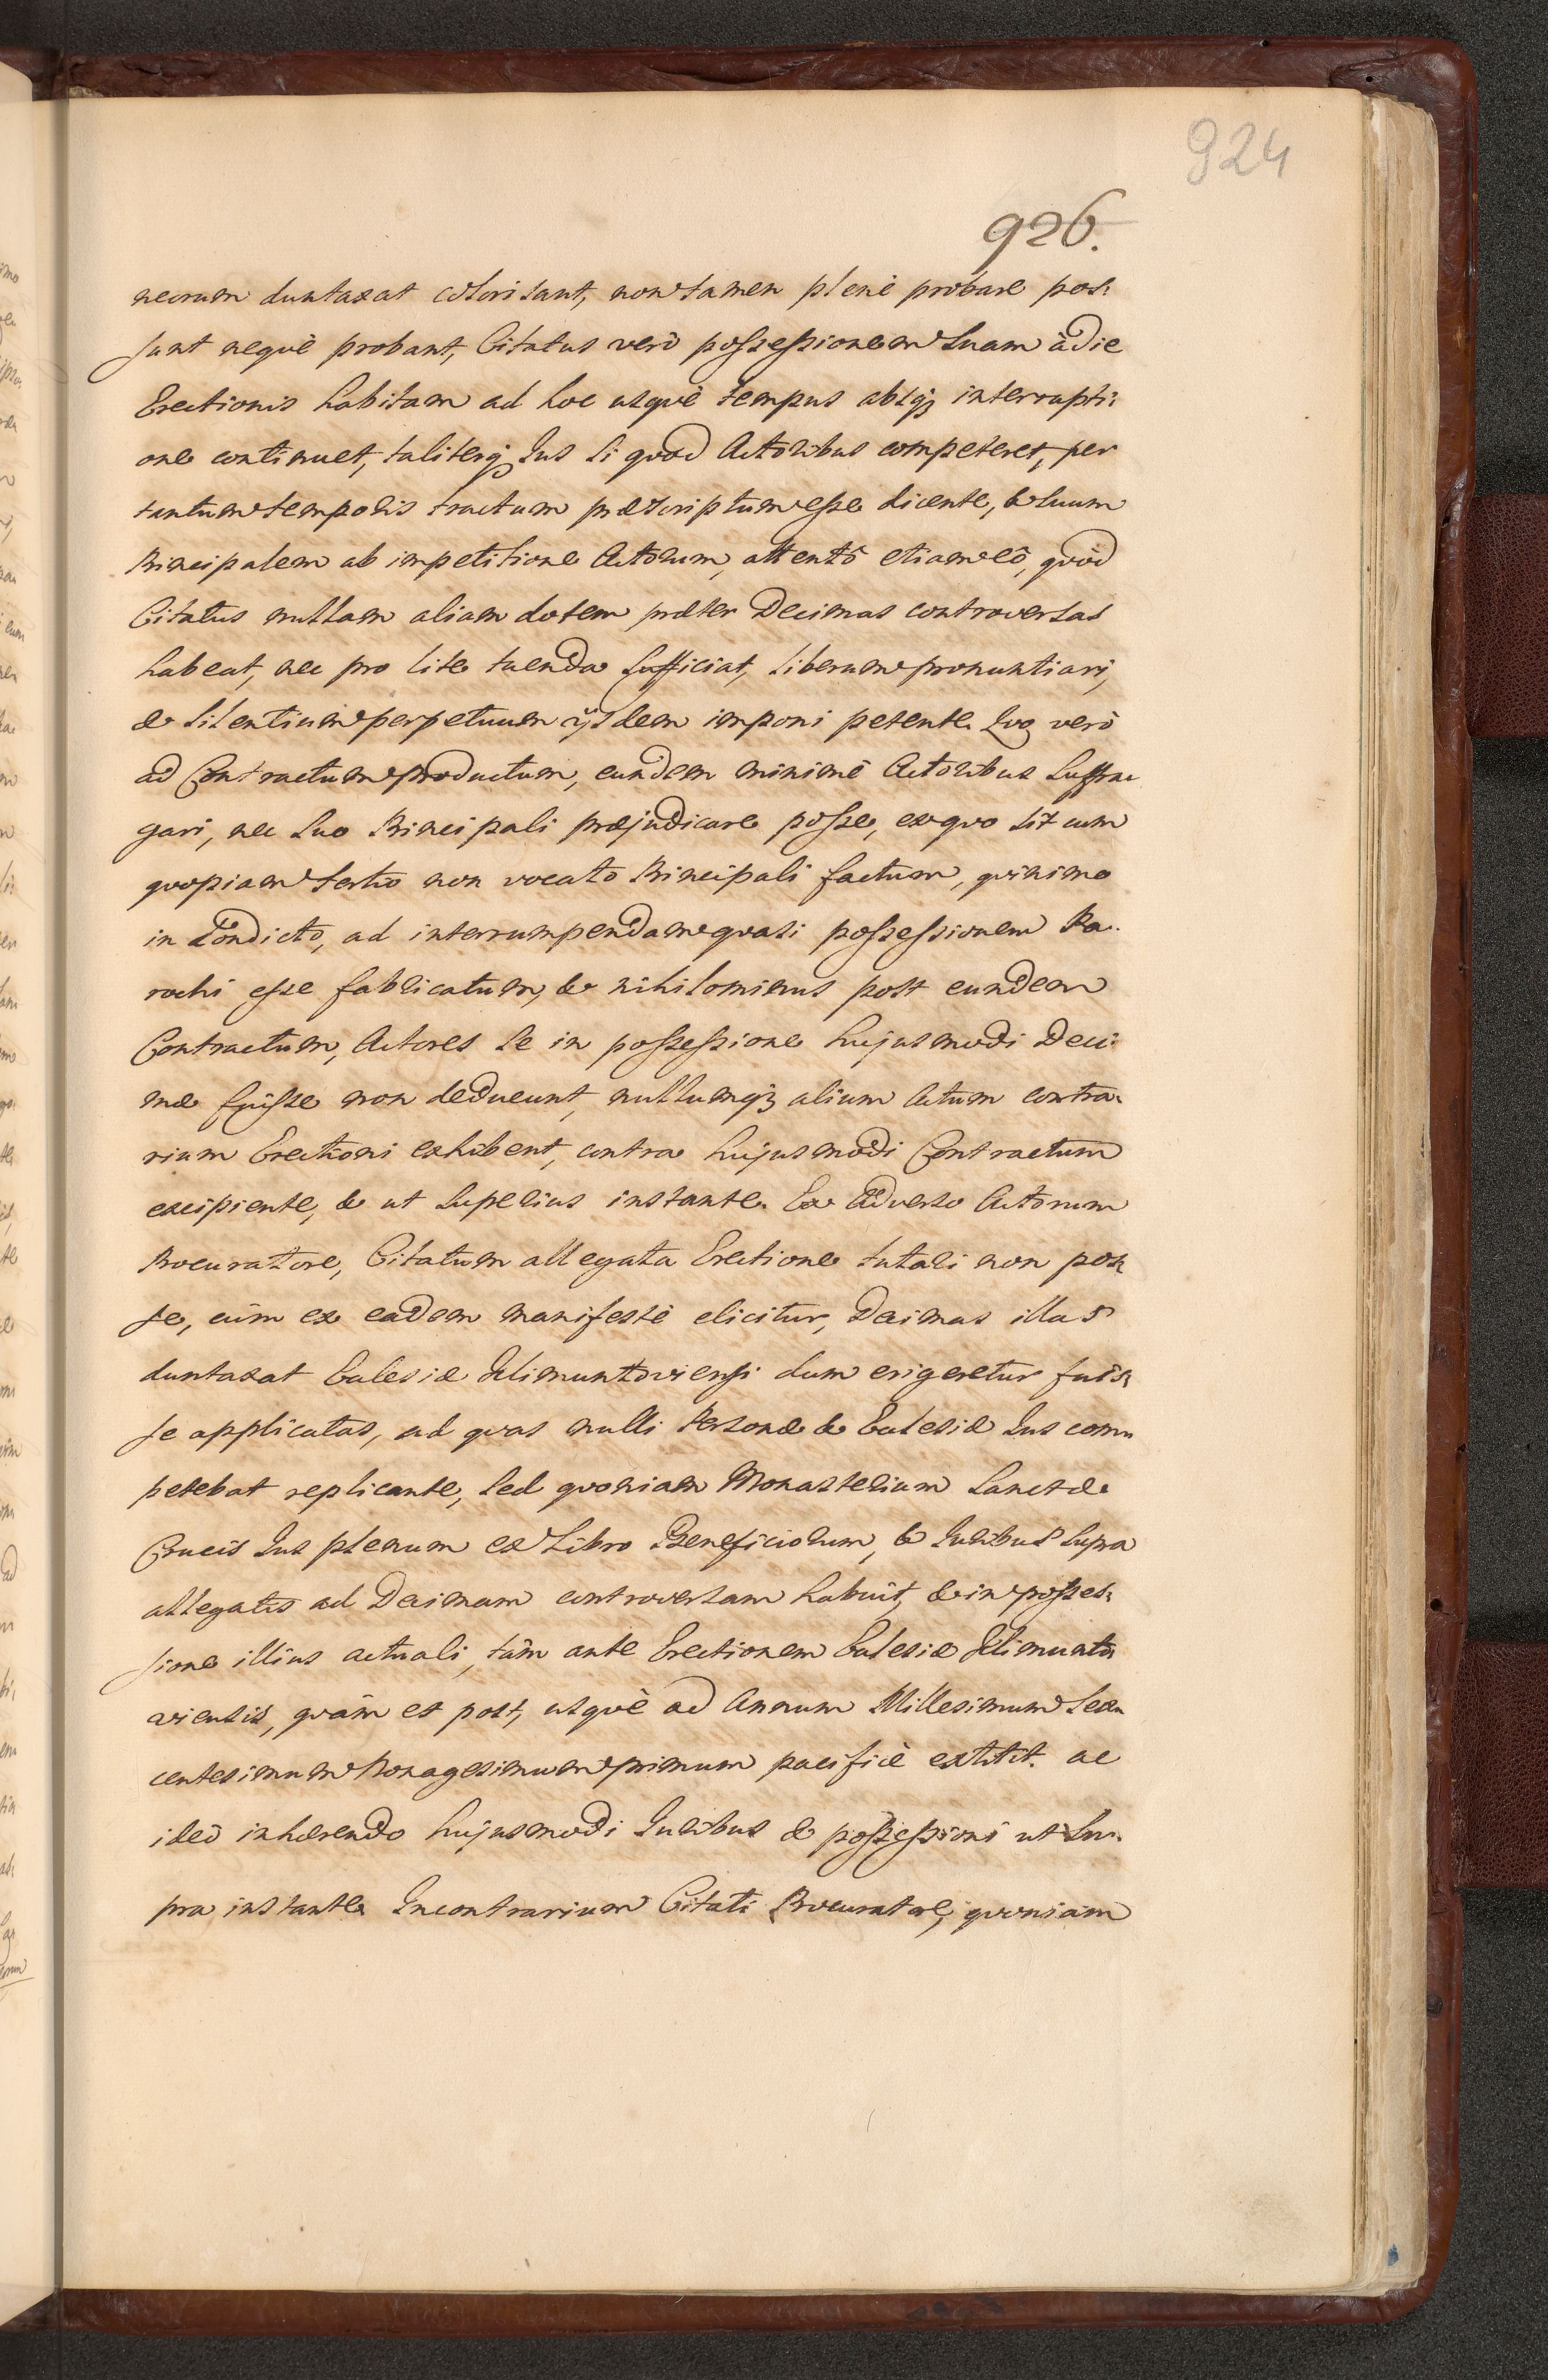 924
926.
neorum duntaxat coloritant, non tamen plenè probare pos:
sunt nequè probant, Citatus verò possessionem Suam à die
Erectionis habitam ad hoc usquè tempus absq; interrupti:
one continuet, taliterq; Jus si quod Actoribus competeret, per
tantum temporis tractum præscriptum esse dicente, & Suum
Principalem ab impetitione Actorum, attentô etiam eô, quòd
Citatus nullam aliam dotem præter Decimas controversas
habeat, nec pro lite tuenda Sufficiat, liberum pronuntiari,
& Silentium perpetuum ijsdem imponi petente. Quo verò
ad Contractum productum, eundem minimè Actoribus Suffra:
gari, nec Suo Principali præjudicare posse, ex quo sit cum
quopiam tertio non vocato Principali factum, quinimo
in Condicto, ad interrumpendam quasi possessionem Pa:
rochi esse fabricatum, & nihilominus post eundem
Contractum, Actores Se in possessione hujusmodi Deci:
mæ fuisse non deducunt, nullumq; alium Actum contra:
rium Erectioni exhibent, contra hujusmodi Contractum
excipiente, & ut Superius instante. Ex adverso Actorum
Procuratore, Citatum allegata Erectione tutari non pos:
se, cùm ex eadem manifestè elicitur, Decimas illas
duntaxat Ecclesiæ Klimuntoviensi dum erigeretur fuis:
se applicatas, ad quas nulli Personæ & Ecclesiæ Jus com:
petebat replicante, Sed quoniam Monasterium Sanctæ
Crucis Jus plenum ex Libro Beneficiorum, & Juribus Supra
allegatis ad Decimam controversam habuit, & in posses:
sione illius actuali, tàm ante Erectionem Ecclesiæ Klimunto:
viensis, quàm et post, usquè ad Annum Millesimum Sex:
centesimum Nonagesimum primum pacificè extitit. ac
ideò inhærendo hujusmodi Juribus & possessioni ut Su:
pra instante. In contrarium Citati Procuratore, quoniam